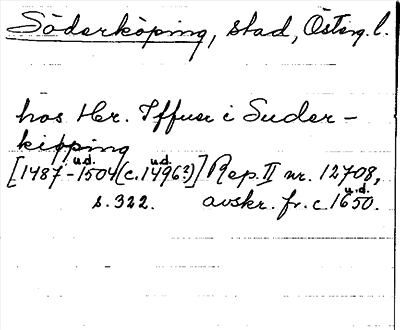 Söderköping, stad, Österg. l.
hos Hr. Iffuer i Suder-
kipping
[1487 u.d. - 1504 (c. 1496? u.d.)] Rep. II nr. 12708,
s. 322. avskr. fr. c. 1650. u.d.